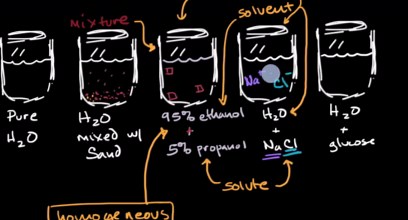 solvent
mixture
Na
Cl-
Pure
H2O
H2O
mixed w/
Sand
95% ethanol
+
5% propanol
H2O
+
NaCl
H2O
+
glucose
solute
homogeneous